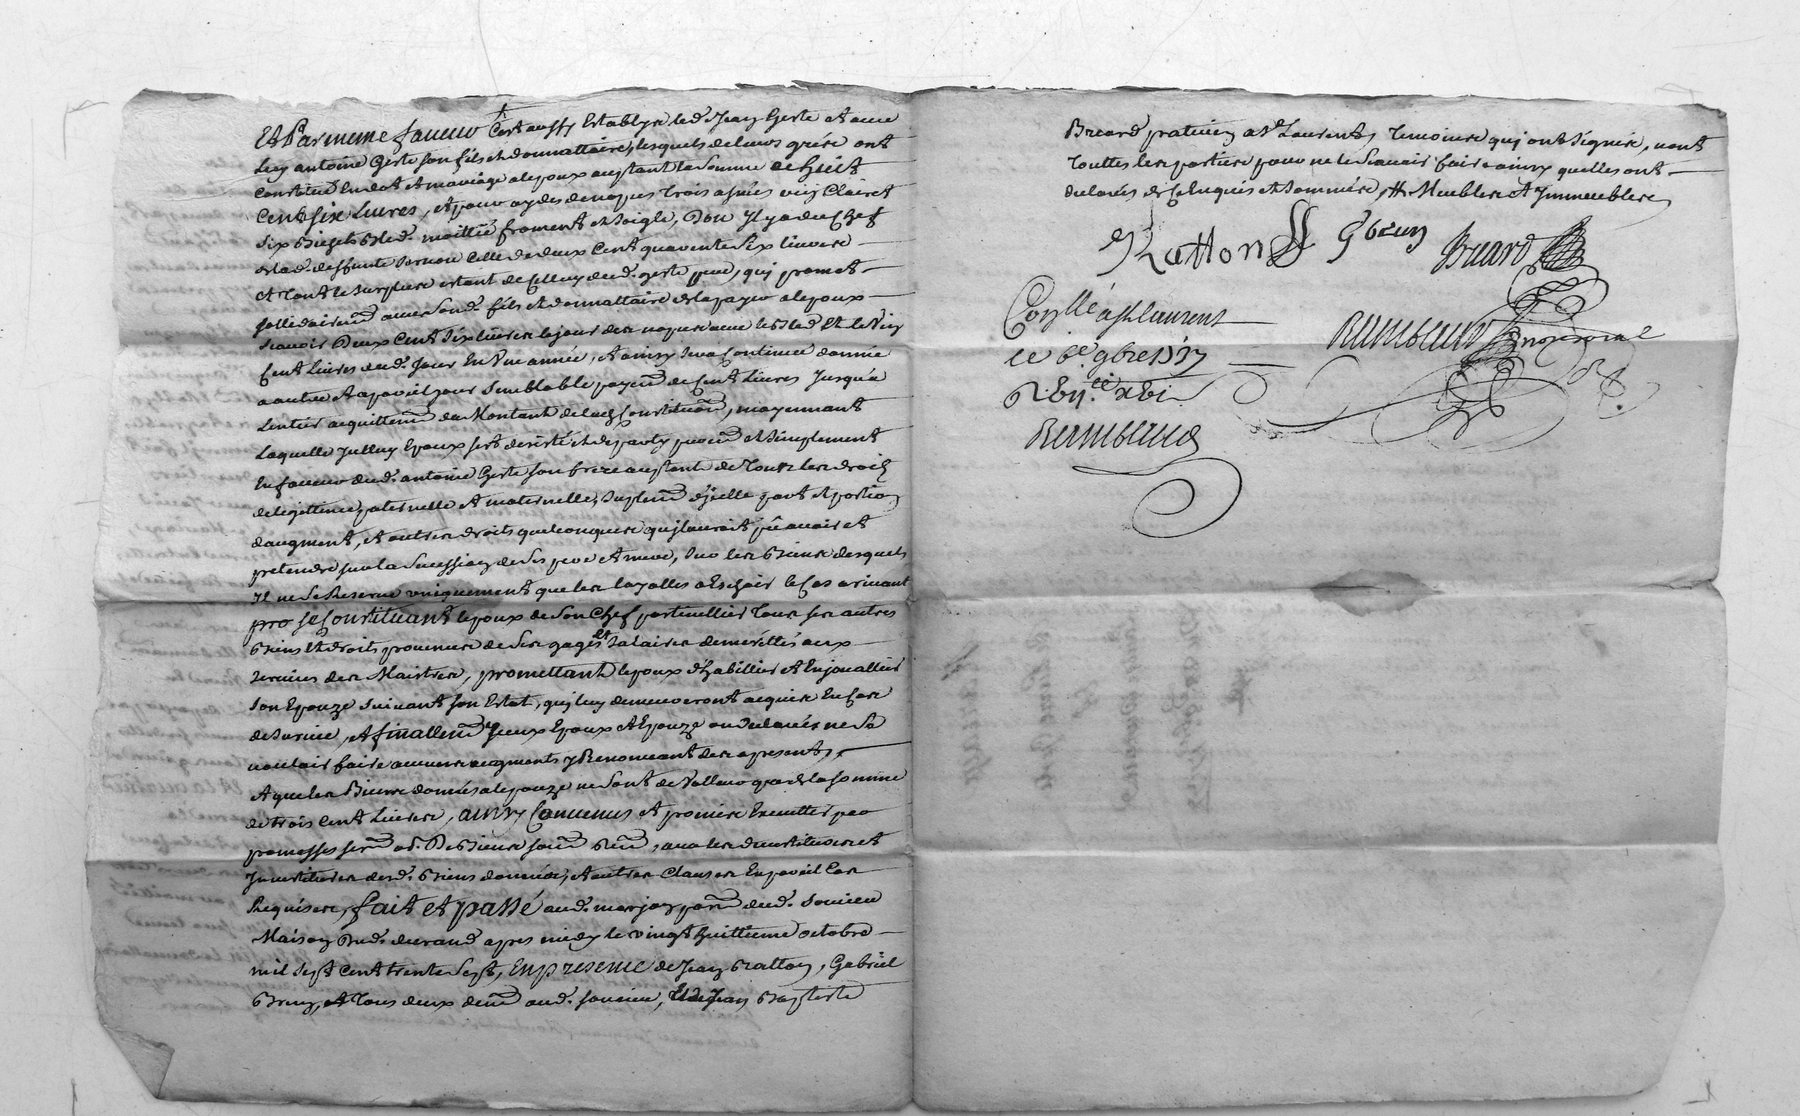 Et Par meme faveur C'est aussy Establys led. Jean Geste et avec
Luy antoine Geste son fils et donnattaire, lesquels de leurs grés ont
Constitué En dot et mariage alepoux acceptant la Somme de huit
Cents six Livres, et pour aydes de nopces trois asnées vin Clairet
six bichets bled. moittié froment et soigle, Don Il y a du Chef
de lad. deffunte
et tout le surplus estant de Celluy dud. geste pere, qui promet
sollidairemt. avec Sond. fils et donnattaire de la payer alepoux
scavoir Deux Cent six livres le jour des nopces avec le bled et le vin
Cent Livres dud. Jour En Une année, et ainsy sera Continué d'année
a autre et a pareil jour semblable payemt. de Cent Livres Jusqu'a
Lentier acquittemt. du Montant de lad. Constitution, moyennant
Laquelle Epoux s'est desisté et departy puremt. et simplement
En faveur dud. antoine Geste son frere acceptant de tous les droits
de legittime, paternelle et maternelle, suplemt. d'jcelle part et portion
daugment, et autres droits quelconques qu'il auroit pû avoir et
pretendre sur la Succession de Ses pere et mere, sur les biens desquels
Il ne se Reserve uniquement que les loyalles Eschoir le Cas arrivant
pro se Constituant lepoux de Son Chef particullier tous ses autres
biens et droits provenus de Ses gages et salaires demerittés aux
services des Maistres, promettant lepoux d'habiller et Enjoualler
son Epouze suivant son Estat, qui luy demeureront acquis En Cas
de survie, et finallemt. yceux Epoux et Epouze ont declarés ne se
vouloir faire aucuns augments y Renonceant des apresent,
et que les Biens donnés alepouze ne sont de Valleur que de la somme
de trois cent Livres, ainsy Convenus et promis Executter par
promesses sermt. obl. De biens soumn. renn., avec les devestitures et
Investitures desd. biens donnés, et autres Clauses En pareil Cas
Requises, fait et passé aud. parse. dud. soucieu
Maison Dud. durand apres midy le vingt huittieme octobre
mil sept cent trente sept, En presence de Jean Ratton, Gabriel
Brun, et tous deux demt. aud. soucieu, Et de Jean Baptiste
Breard praticien a St. Laurent, temoins qui ont signés, non
touttes les parties pour ne le Scavoir faire ainsy quelles ont
declarés de Ce Enquis et sommés, // Meubles et Immeubles
J Ratton G brun Breard
Conllé a St laurent
ce 6e. 9bre 1737
Rambaud nore royal
Rambaud